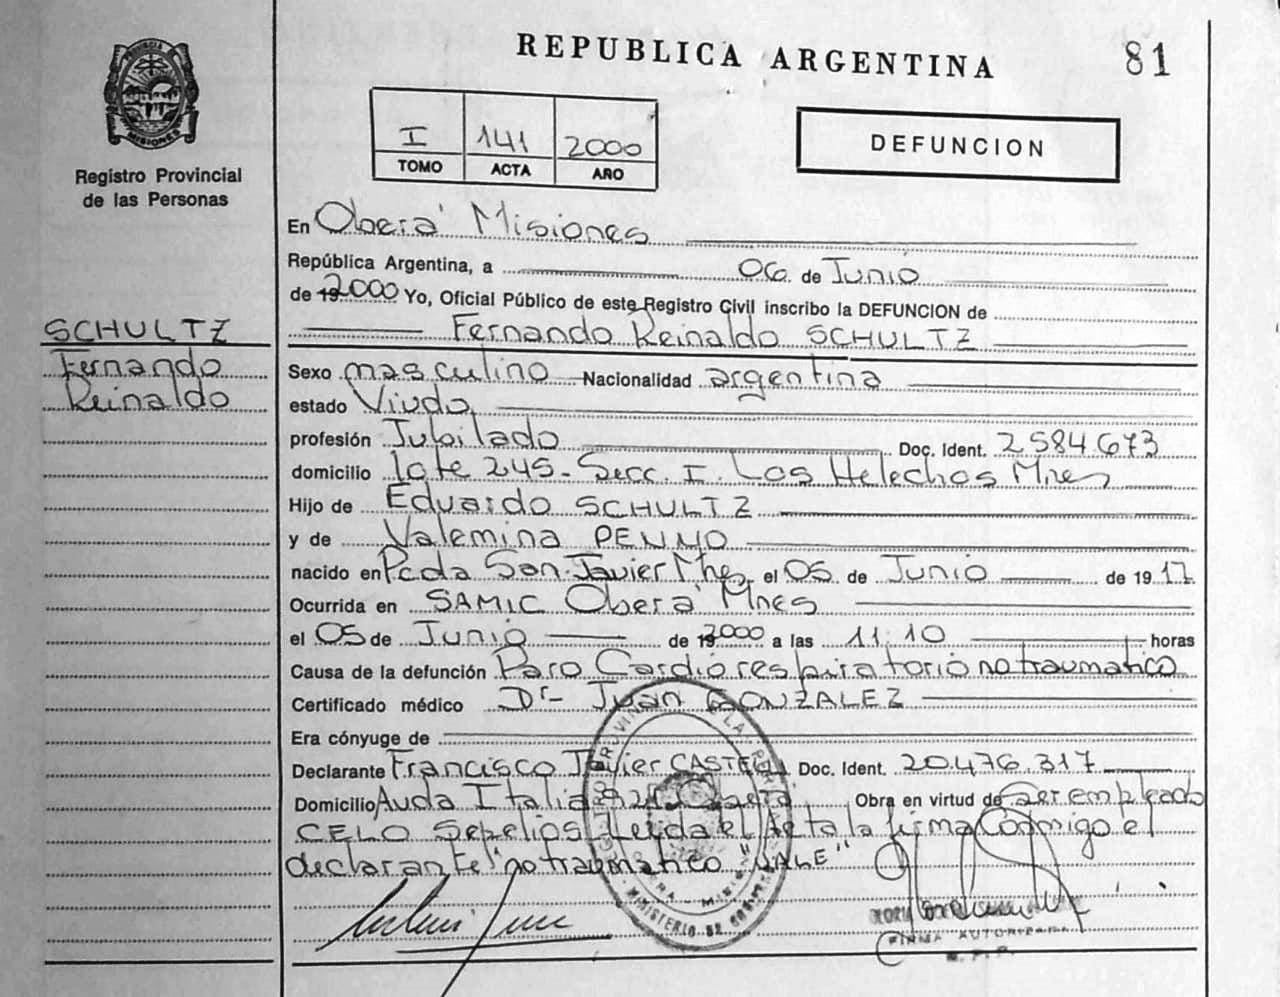 REPUBLICA ARGENTINA
81
PROVINCIA
MISIONES
Registro Provincial
de las Personas
I 141 2000
TOMO ACTA AÑO
DEFUNCION
En Oberá Misiones
República Argentina, a 06 de Junio
de 19 2000 Yo, Oficial Público de este Registro Civil inscribo la DEFUNCION de
Fernando Reinaldo SCHULTZ
SCHULTZ
Fernando
Reinaldo
Sexo masculino Nacionalidad argentina
estado Viudo
profesión Jubilado Doc. Ident. 2584.673
domicilio lote 245- Secc. I. Los Helechos Mnes
Hijo de Eduardo SCHULTZ
y de Valemina PENNO
nacido en Pcda San Javier Mnes el 05 de Junio de 19 17
Ocurrida en SAMIC Oberá Mnes
el 05 de Junio de 19 2000 a las 11.10 horas
Causa de la defunción Paro Cardiorespiratorio no traumatico
Certificado médico Dr- Juan GONZALEZ
Era cónyuge de
Declarante Francisco Javier CASTELL Doc. Ident. 20.476.317
Domicilio Avda Italia Oberá Obra en virtud de Ser empleado
CELO Sepelios. Leida el Acta la firma Conmigo el
declarante "no traumatico "VALE"
MINISTERIO DE
FIRMA AUTORIZADA